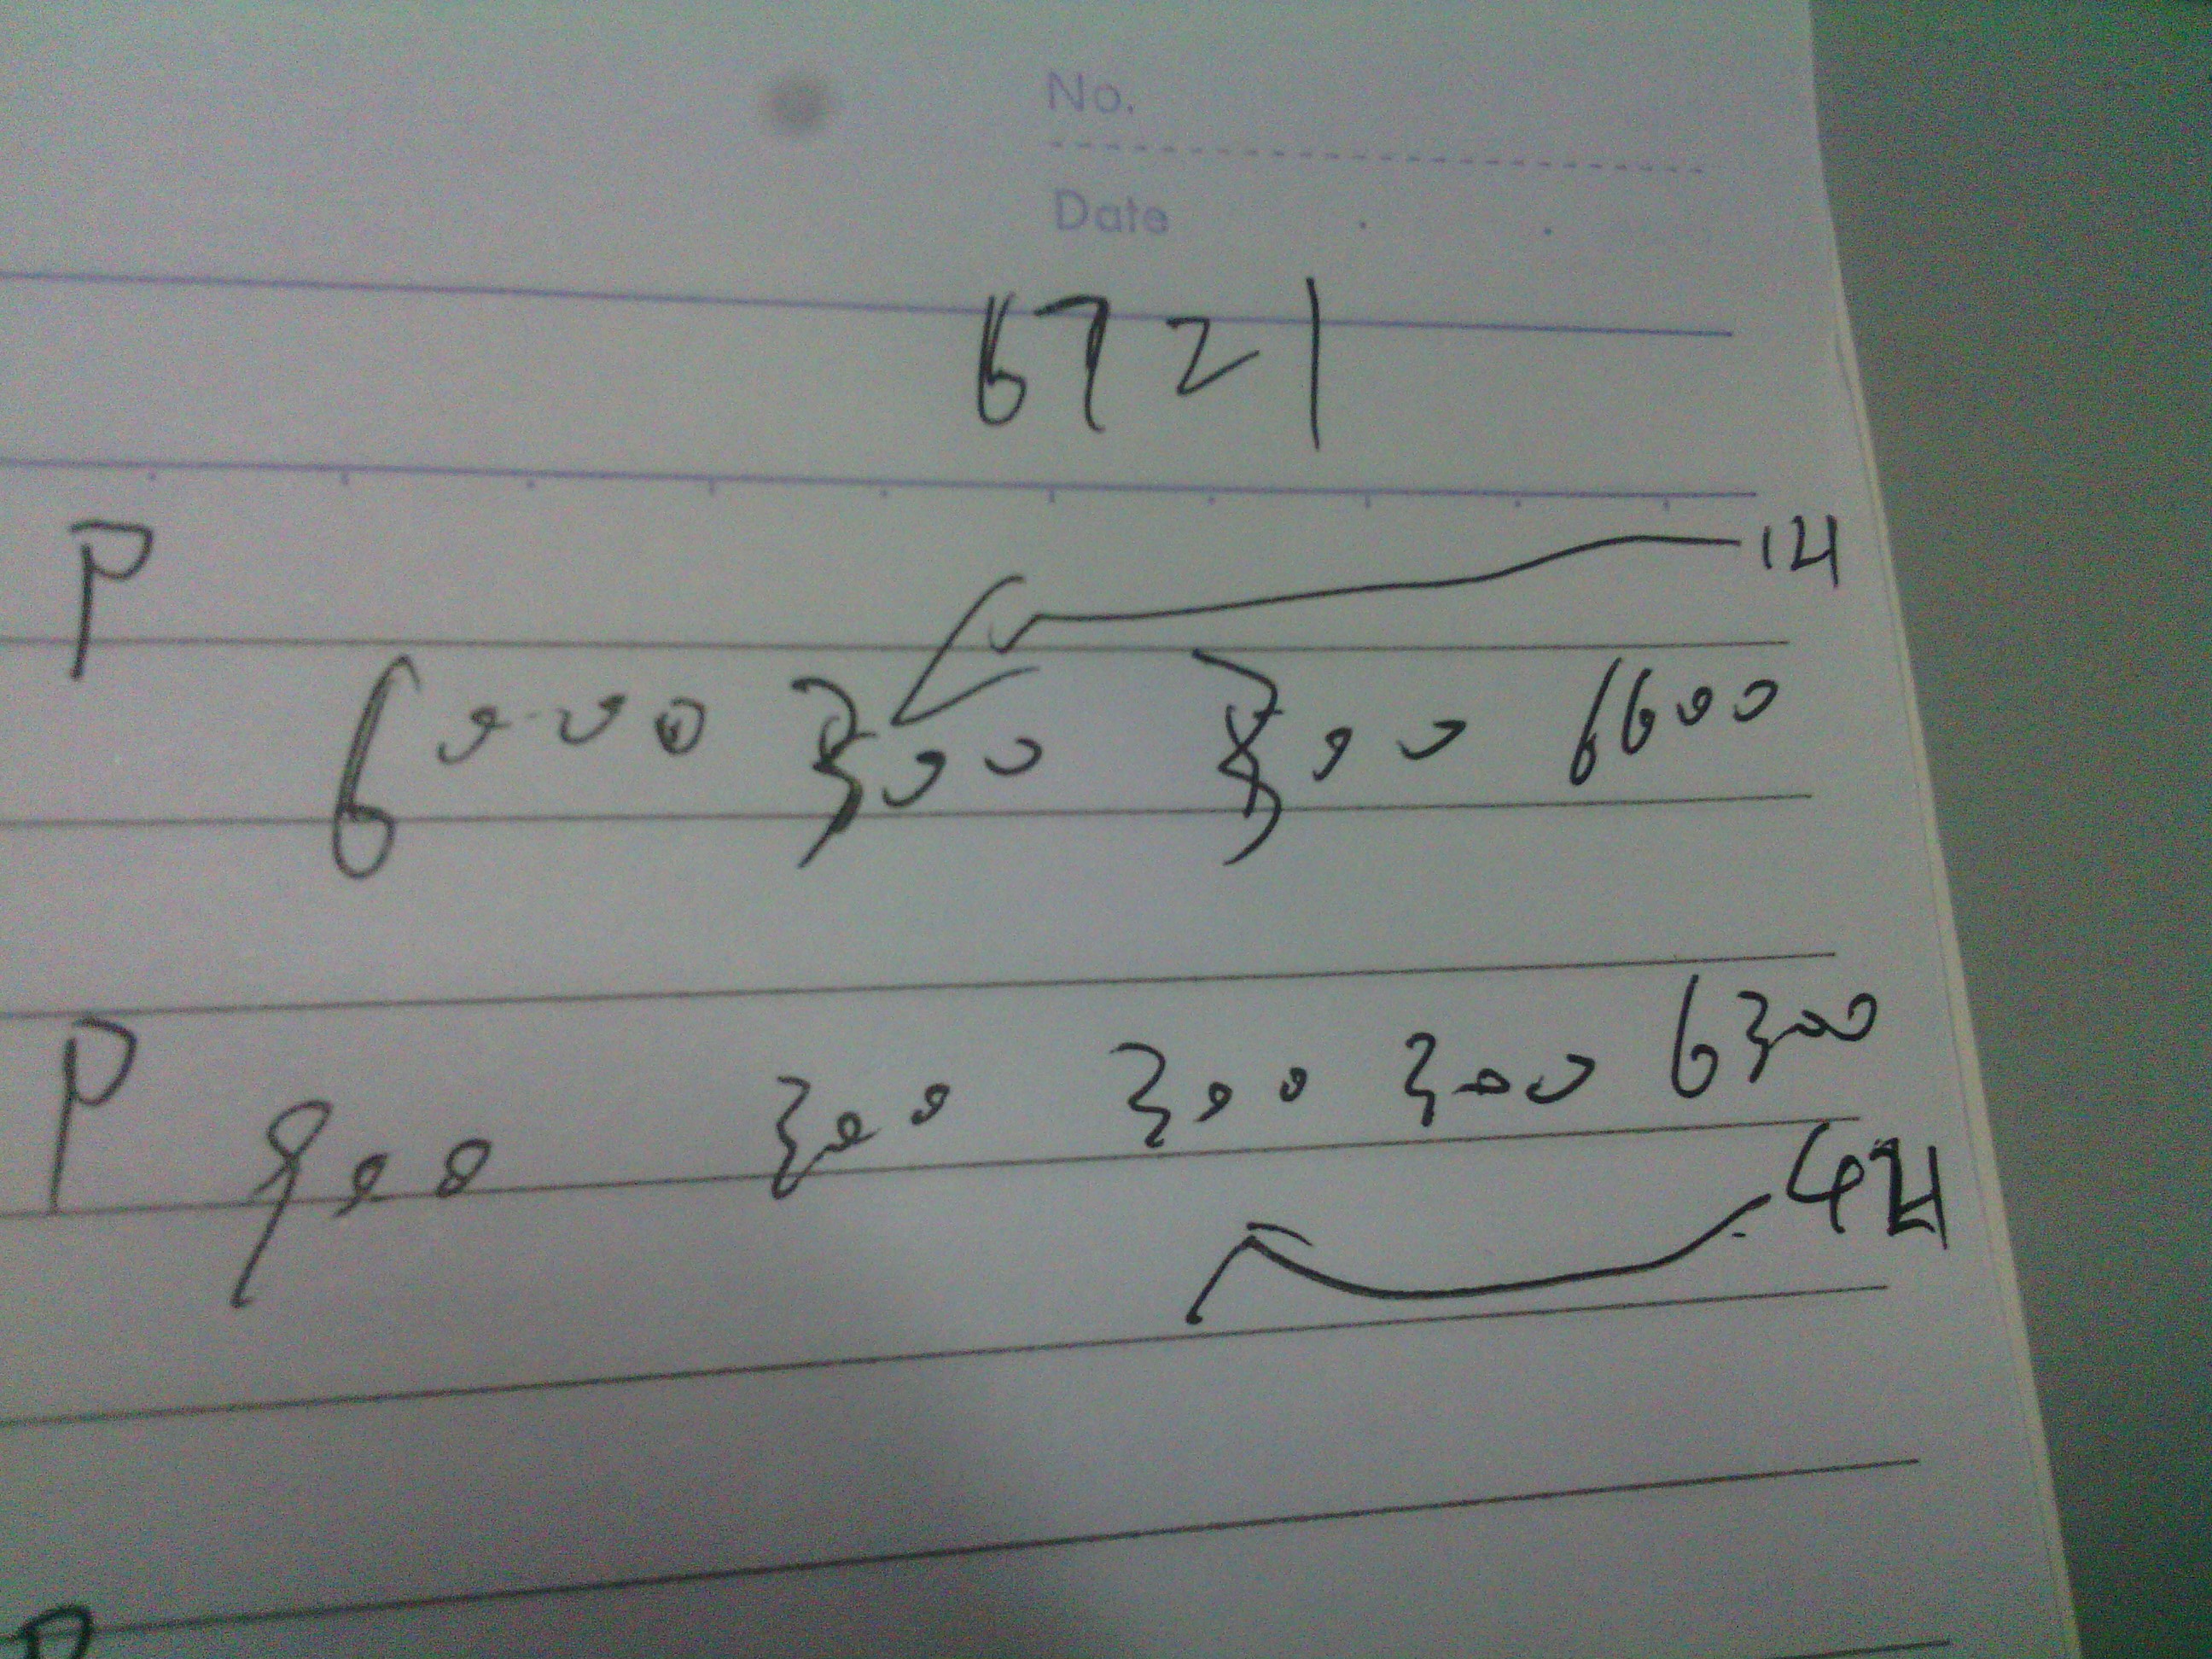 No.
Date
6721
P
121
6000 300 300 6600
P 900 300 300 300 6300
421